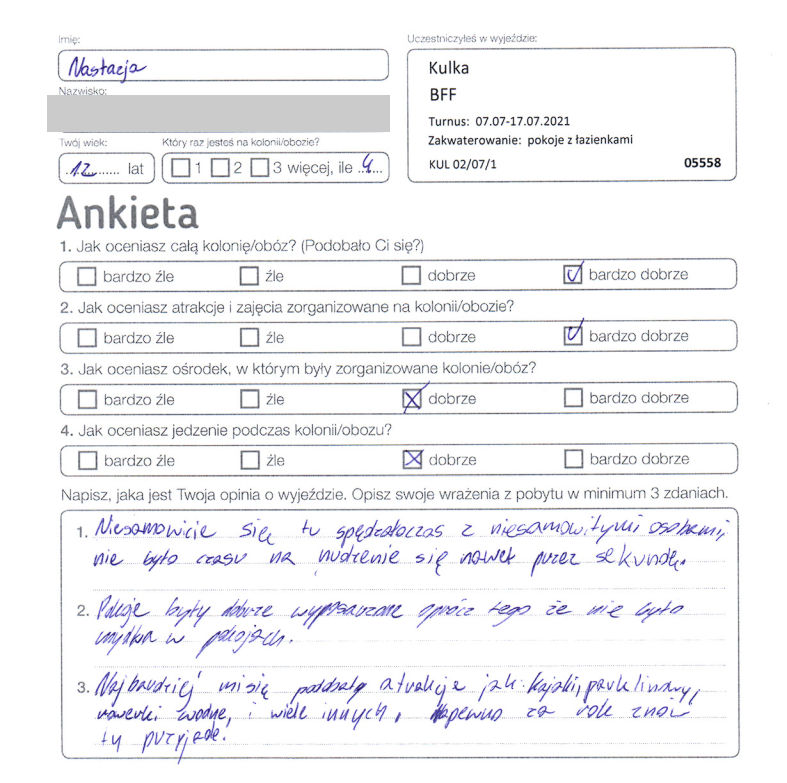 Imię:
Nastazja
Nazwisko:
Twój wiek:
12 lat
Który raz jesteś na kolonii/obozie?
1 2 3 więcej, ile 4
Uczestniczyłeś w wyjeździe:
Kulka
BFF
Turnus: 07.07-17.07.2021
Zakwaterowanie: pokoje z łazienkami
KUL 02/07/1 05558
Ankieta
1. Jak oceniasz całą kolonię/obóz? (Podobało Ci się?)
bardzo źle źle dobrze bardzo dobrze
2. Jak oceniasz atrakcje i zajęcia zorganizowane na kolonii/obozie?
bardzo źle źle dobrze bardzo dobrze
3. Jak oceniasz ośrodek, w którym były zorganizowane kolonie/obóz?
bardzo źle źle dobrze bardzo dobrze
4. Jak oceniasz jedzenie podczas kolonii/obozu?
bardzo źle źle dobrze bardzo dobrze
Napisz, jaka jest Twoja opinia o wyjeździe. Opisz swoje wrażenia z pobytu w minimum 3 zdaniach.
1. Niesamowicie się tu spędzało czas z niesamowitymi osobami,
nie było czasu na nudzenie się nawet przez sekundę.
2. Pokoje były dobrze wyposażone oprócz tego że nie było
mydła w pokojach.
3. Najbardziej mi się podobały atrakcje jak: kajaki, park linowy,
rowerki wodne, i wiele innych. Napewno za rok znów
tu przyjadę.